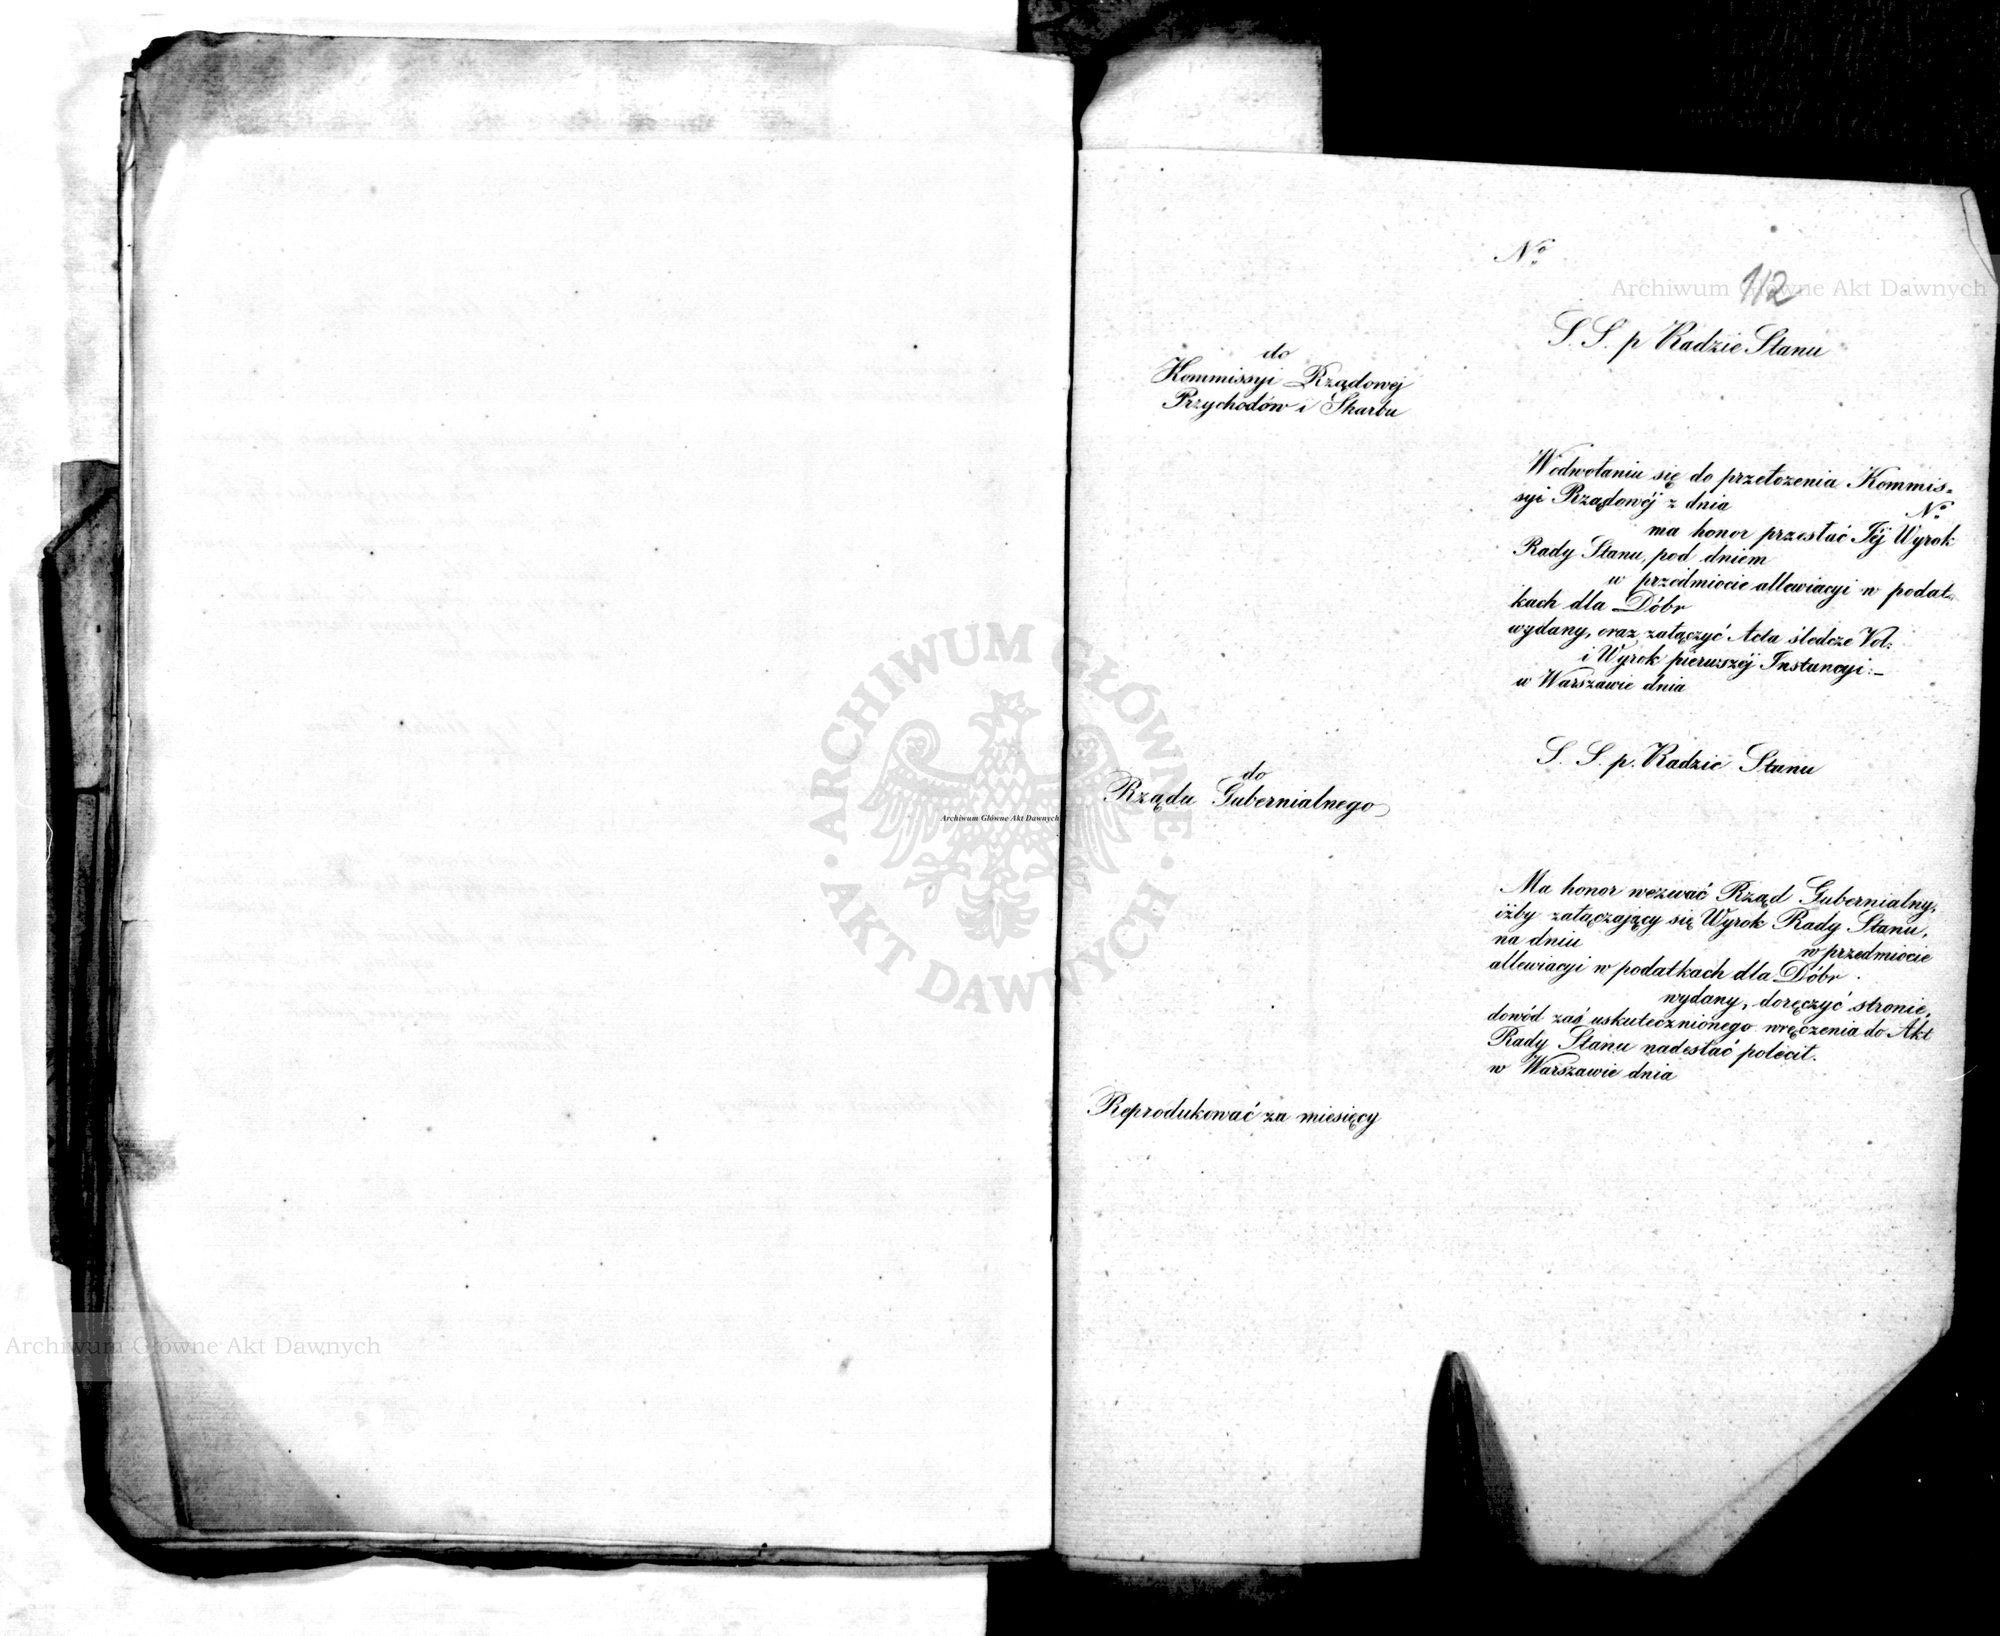 Nº
112
S. S. p Radzie Stanu
do
Kommissyi Rządowej
Przychodów i Skarbu
W odwołaniu się do przełożenia Kommis=
syi Rządowéj z dnia Nº
ma honor przesłać Jéj Wyrok
Rady Stanu, pod dniem
w przedmiocie allewiacyi w podat=
kach dla Dóbr
wydany, oraz załączyć Acta śledcze Vol:
i Wyrok pierwszéj Instancyi:—
w Warszawie dnia
S. S. p. Radzie Stanu
do
Rządu Gubernialnego
Ma honor wezwać Rząd Gubernialny,
iżby załączający się Wyrok Rady Stanu,
na dniu w przedmiocie
allewiacyi w podatkach dla Dóbr
wydany, doręczyć stronie,
dowód zaś uskutecznionego wręczenia do Akt
Rady Stanu nadesłać polecił.
w Warszawie dnia
Reprodukować za miesięcy
Archiwum Główne Akt Dawnych
Archiwum Główne Akt Dawnych
Archiwum Główne Akt Dawnych
ARCHIWUM GŁÓWNE · AKT DAWNYCH ·